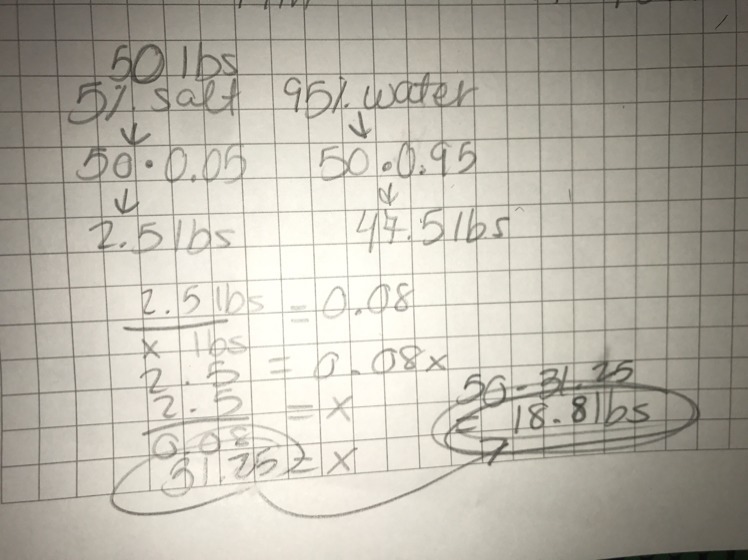 50 lbs
5% salt 95% water
↓ ↓
50 • 0.05 50 • 0.95
↓ ↓
2.5 lbs 47.5 lbs
2.5 lbs = 0.08
x lbs
2.5 = 0.08x
2.5 = x
0.08
31.25 = x
50 - 31.25
= 18.8 lbs